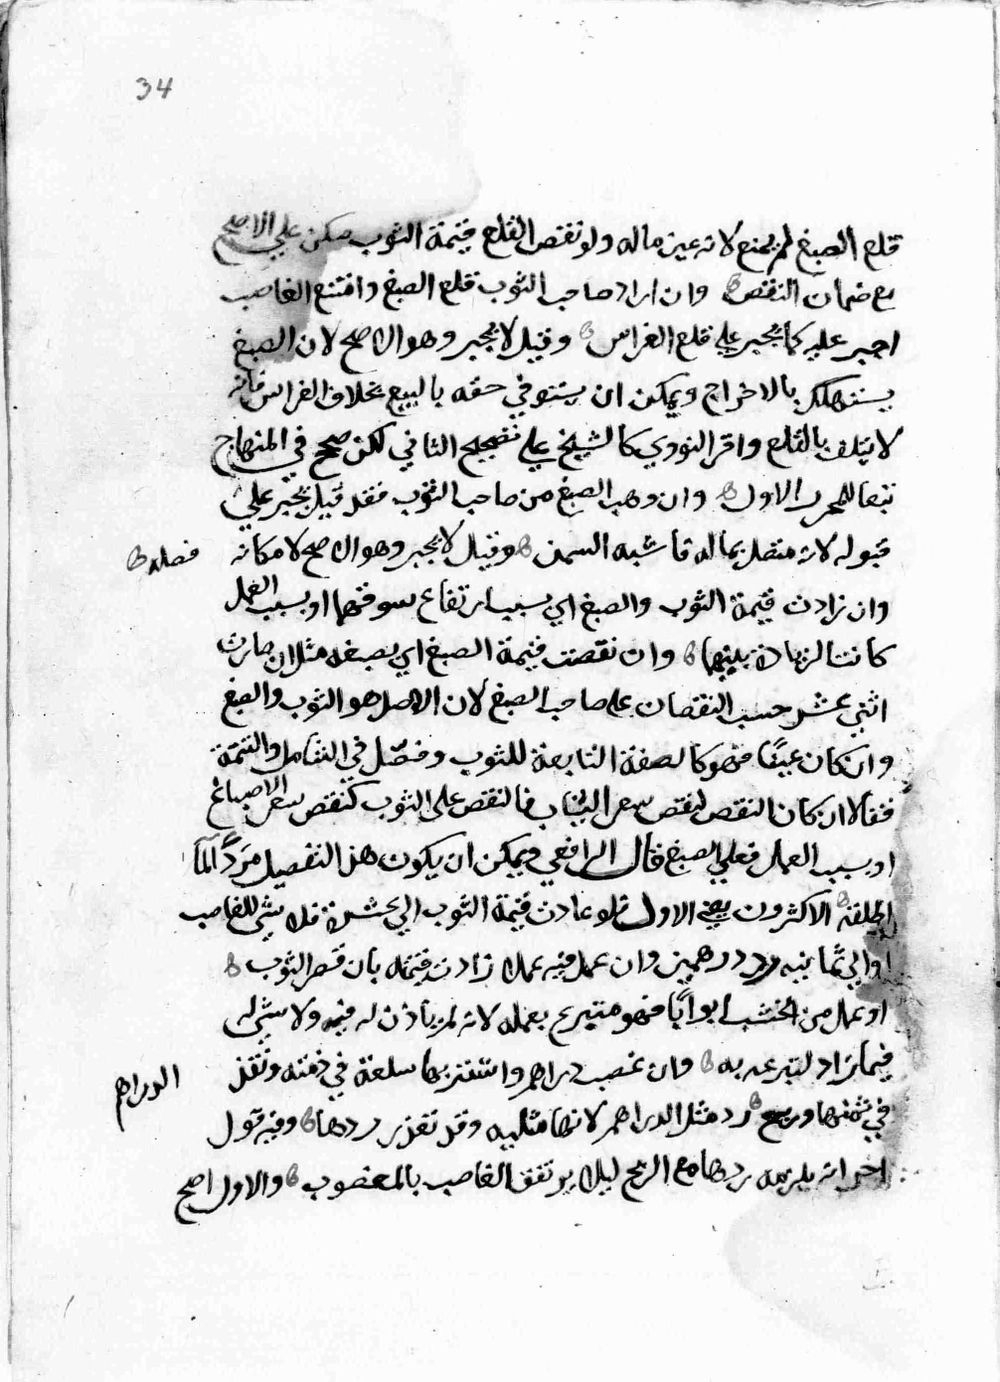 34
قلع الصبغ لم يمنع لانه عين ماله ولو نقص القلع قيمة الثوب مكن علي الاصح
مع ضمان النقص وان اراد صاحب الثوب قلع الصبغ وامتنع الغاصب
اجبر عليه كما يجبر علي قلع الغراس وقيل لا يجبر وهو الاصح لان الصبغ
يستهلك بالاخراج ويمكن ان يستوفي حقه بالبيع بخلاف الغراس فانه
لا يتلف بالقلع واقر النووي كالشيخ علي تصحيح الثاني لكن صحح في المنهاج
تبعا للمحرر الاول وان وهب الصبغ من صاحب الثوب فقد قيل يجبر علي
قبوله لانه متصل بماله فاشبه السمن وقيل لا يجبر وهو الاصح لامكانه
فصله
وان زادت قيمة الثوب والصبغ اي بسبب ارتفاع سوقهما او بسبب العمل
كانت الزيادة بينهما وان نقصت قيمة الصبغ اي بصبغه مثل ان صارت
اثني عشر حسب النقصان علي صاحب الصبغ لان الاصل هو الثوب والصبغ
وان كان عينًا فهو كالصفة التابعة للثوب وفصّل في الشامل والتتمة
فقالا ان كان النقص لنقص سعر الثياب فالنقص على الثوب كنقص سعر الاصباغ
او بسبب العمل فعلي الصبغ قال الرافعي ويمكن ان يكون هذا التفصيل مرَدًّا لما
اطلقه الاكثرون يعني الاول فلو عادت قيمة الثوب الي عشرة فلا شي للغاصب
او الي ثمانيه رد درهمين وان عمل فيه عملا زادت قيمته بان قصر الثوب
او عمل من الخشب ابوابًا فهو متبرع بعمله لانه لم ياذن له فيه ولا شي له
فيما زاد لتبرعه به وان غصب دراهم واشترى بها سلعة في ذمته ونقد
الدراهم
في ثمنها وربح رد مثل الدراهم لانها مثليه وقد تعذر ردها وفيه قول
اخر انه يلزمه ردها مع الربح ليلا يرتفق الغاصب بالمغصوب والاول اصح